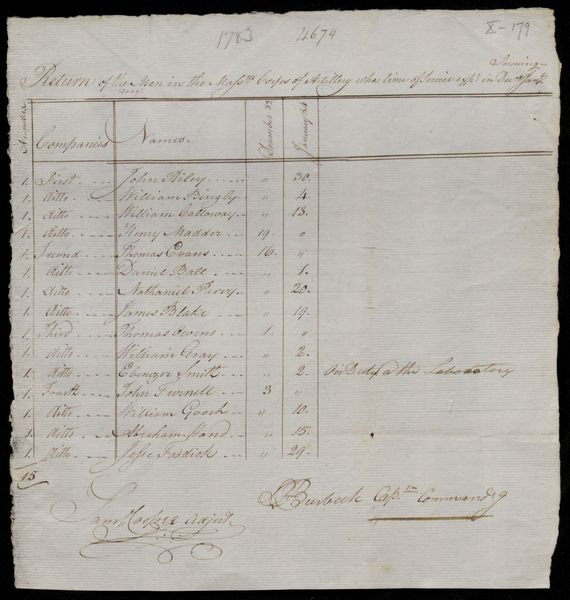 1783 4674 X-179
Ensuing
Return of the Men in the Massts Corps of Artillery whos time of Service exps in Decr Jany
Number Companies Names December 83 January 84
1. First John Riley " 30.
1. ditto William Bingly " 4
1. ditto William Calloway " 18.
1. ditto Henry Madder 19. "
1. Second Thomas Evans 16. "
1. ditto Daniel Ball " 1.
1. ditto Nathaniel Perry " 20.
1. ditto James Blake " 19.
1. Third Thomas Owens 1. "
1. ditto William Gray " 2.
1. ditto Ebenezer Smith " 2. On Duty a the Laboratory
1. Fourth John Furnell 3 "
1. ditto William Gooch " 10.
1. ditto Abraham Hand " 15.
1. ditto Jesse Fosdick " 29.
15
Burbeck Capt. Commandg
Saml Cooper Adjut.